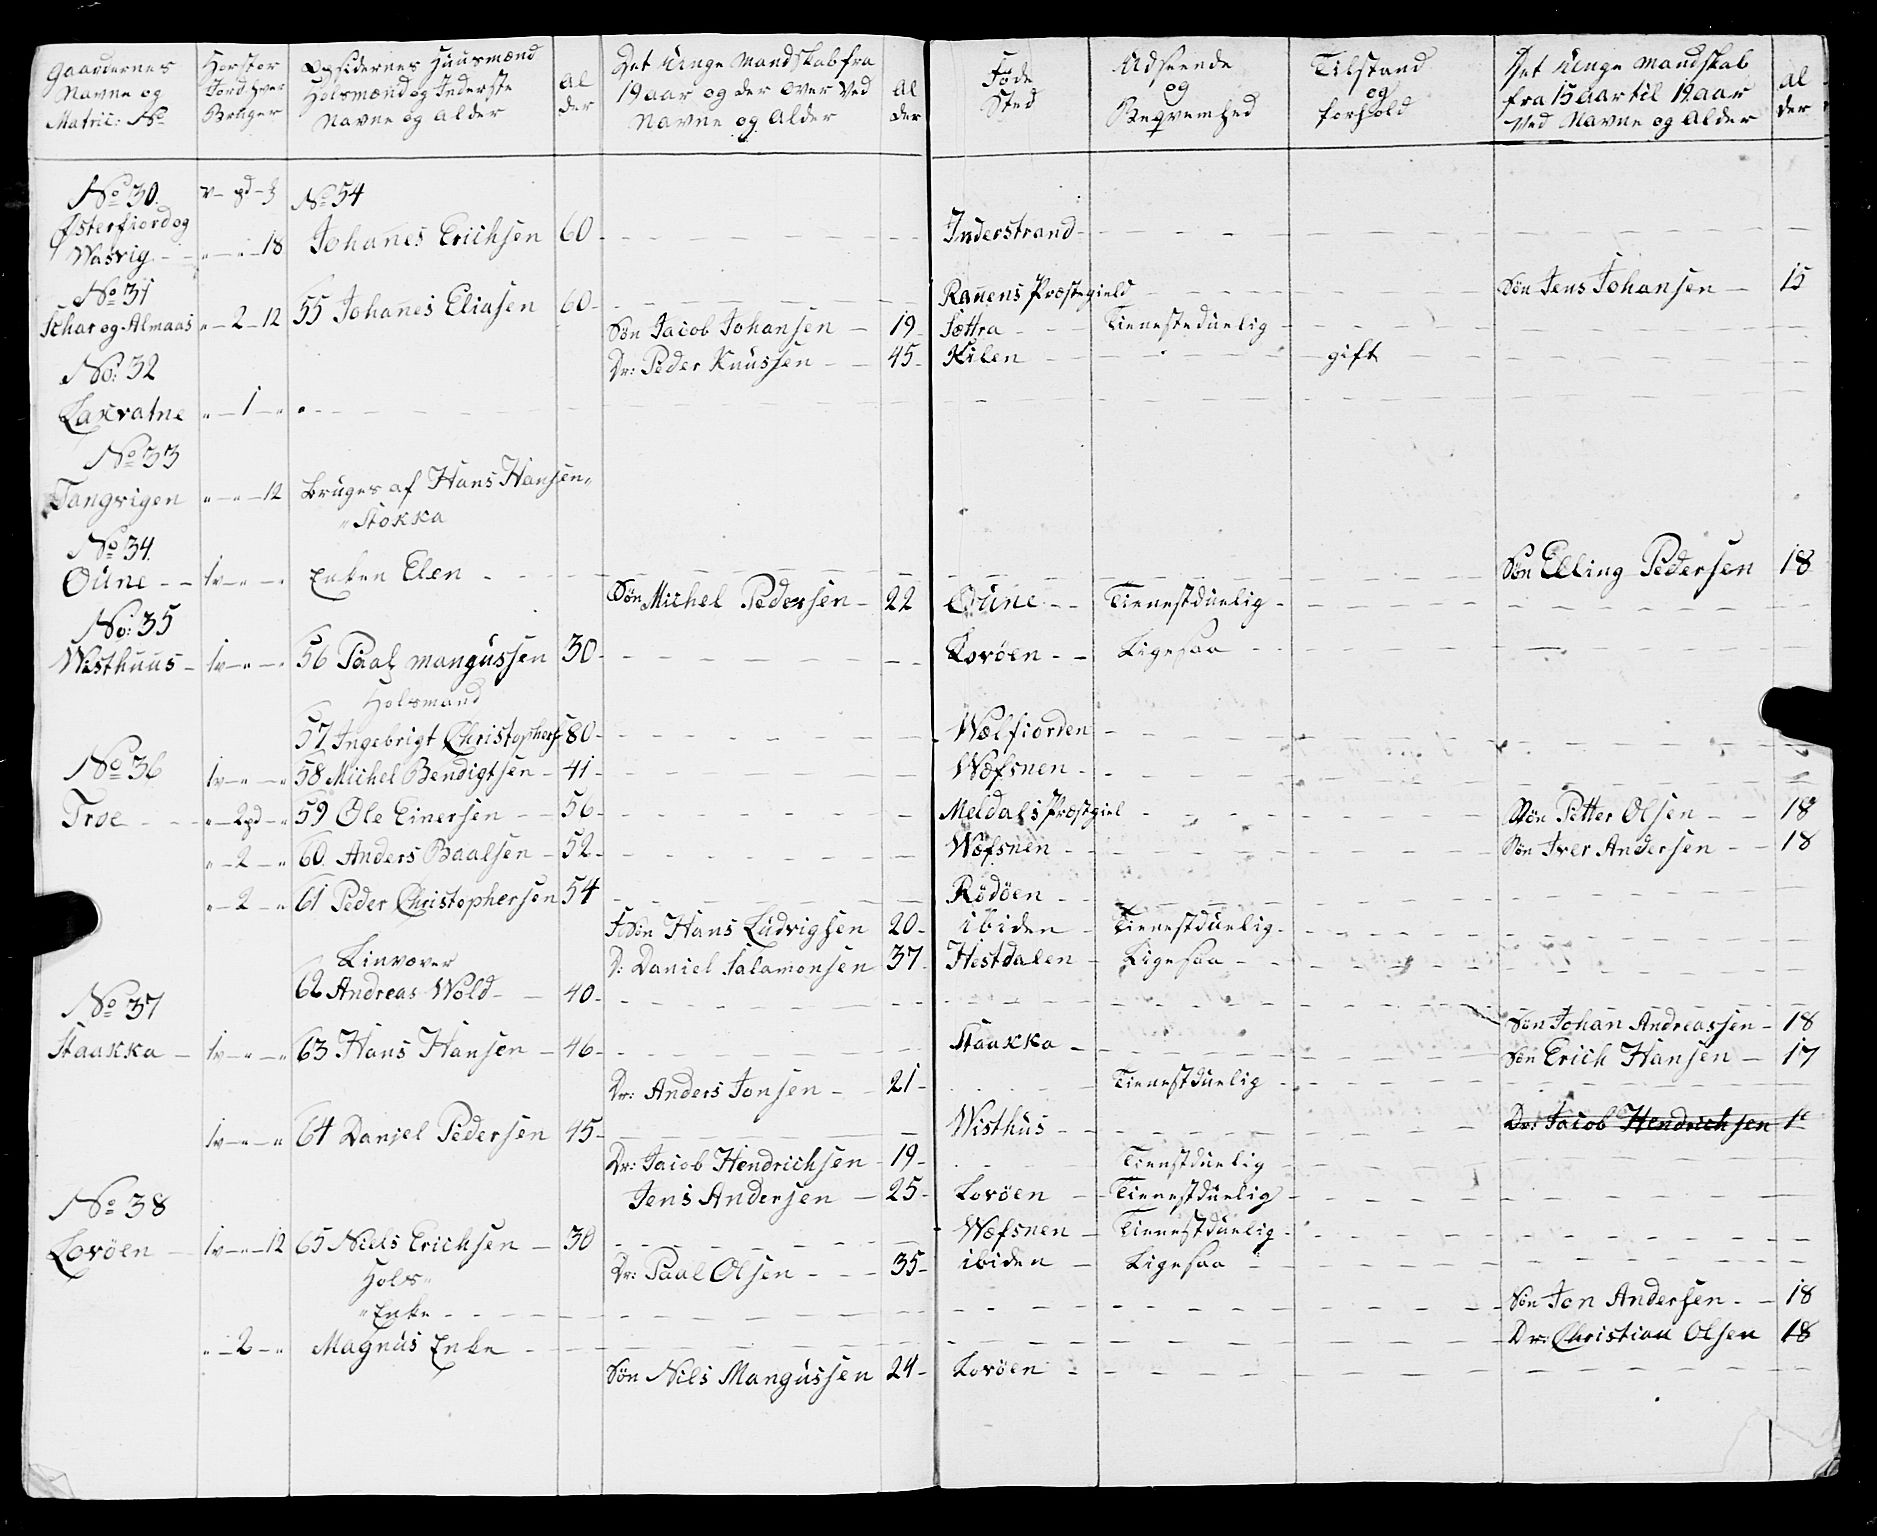 Gaardernes Navne og Matric: No | Hor stor Jord hver Bruger | Opsidernes Huusmænd Holsmænd og Inderste Navne og Alder | Alder | Det Unge Mandskab fra 19 aar og der over Ved Navne og Alder | Alder | Føde Sted | Udseende og Beqvemhed | Tilstand og forhold | Det Unge Mandskab fra 15 aar til 19 aar Ved Navne og Alder | Alder
No 30. | V - pd - | No 54
Østerfiord og Wasvig | " - " - 18 | Johañes Erichsen | 60 | Inderstrand
No 31
Schar og Almaas | " - 2 - 12 | 55 Johañes Eliasen | 60 | Rañens Præstegield | Søn Jens Johansen | 15
Søn Jacob Johansen | 19 | Sættra | Tienestduelig
No: 32 | Dr: Peder Knussen | 45 | Kilen | gift
Laxvatne | " - 1 - "
No 33
Tangvigen | " - " - 12 | Bruges af Hans Hansen "
" Stokka
No 34.
Oune | 1v - " - " | Enken Elen | Søn Elling Pedersen | 18
Søn Michel Pedersen | 22 | Oune | Tienestduelig
No: 35
Wisthuus | 1v - " - " | 56 Paal mangussen | 30 | Lovöen | Ligesaa
Holsmand
57 Ingebrigt Christophers | 80 | Wælfiorden
No 36 | 1v - " - " | 58 Michel Bendigtsen | 41 | Wæfsnen
Troe | " - 2pd - " | 59 Ole Einersen | 56 | Meldals Præstgiel | Søn Petter Olsen | 18
" - 2 - " | 60. Anders Baalsen | 52 | Wæfsnen | Søn Iver Andersen | 18
" - 2 - " | 61 Peder Christophersen | 54 | Rödöen
Hans Ludvigsen | 20 | ibiden | Tienestduelig
Linvover | D: Daniel Salamonsen | 37 | Hestdalen | Ligesaa
62 Andreas Wold | 40
No 37 | Søn Johan Andreassen | 18
Staakka | 1v - " - " | 63 Hans Hansen | 46 | Staakka | Søn Erich Hansen | 17
Dr: Anders Jonsen | 21 | Tienestduelig
1v - " - " | 64 Daniel Pedersen | 45 | Wisthus | Dr: Jacob Hendrichsen
Dr: Jacob Hendrichsen | 19 | Tienstduelig
No 38 | Jens Andersen | 25 | Lovöen | Tienestduelig
Lovöen | 1v - " - 12 | 65 Niels Erichsen | 30 | Wæfsnen | Tienestduelig
Hols " | Dr: Paal Olsen | 35 | ibiden | Ligesaa
" Enke | Søn Jon Andersen | 18
" - 2 - " | Magnus Enke | Dr: Christian Olsen | 18
Søn Nils Mangussen | 24 | Lovöen